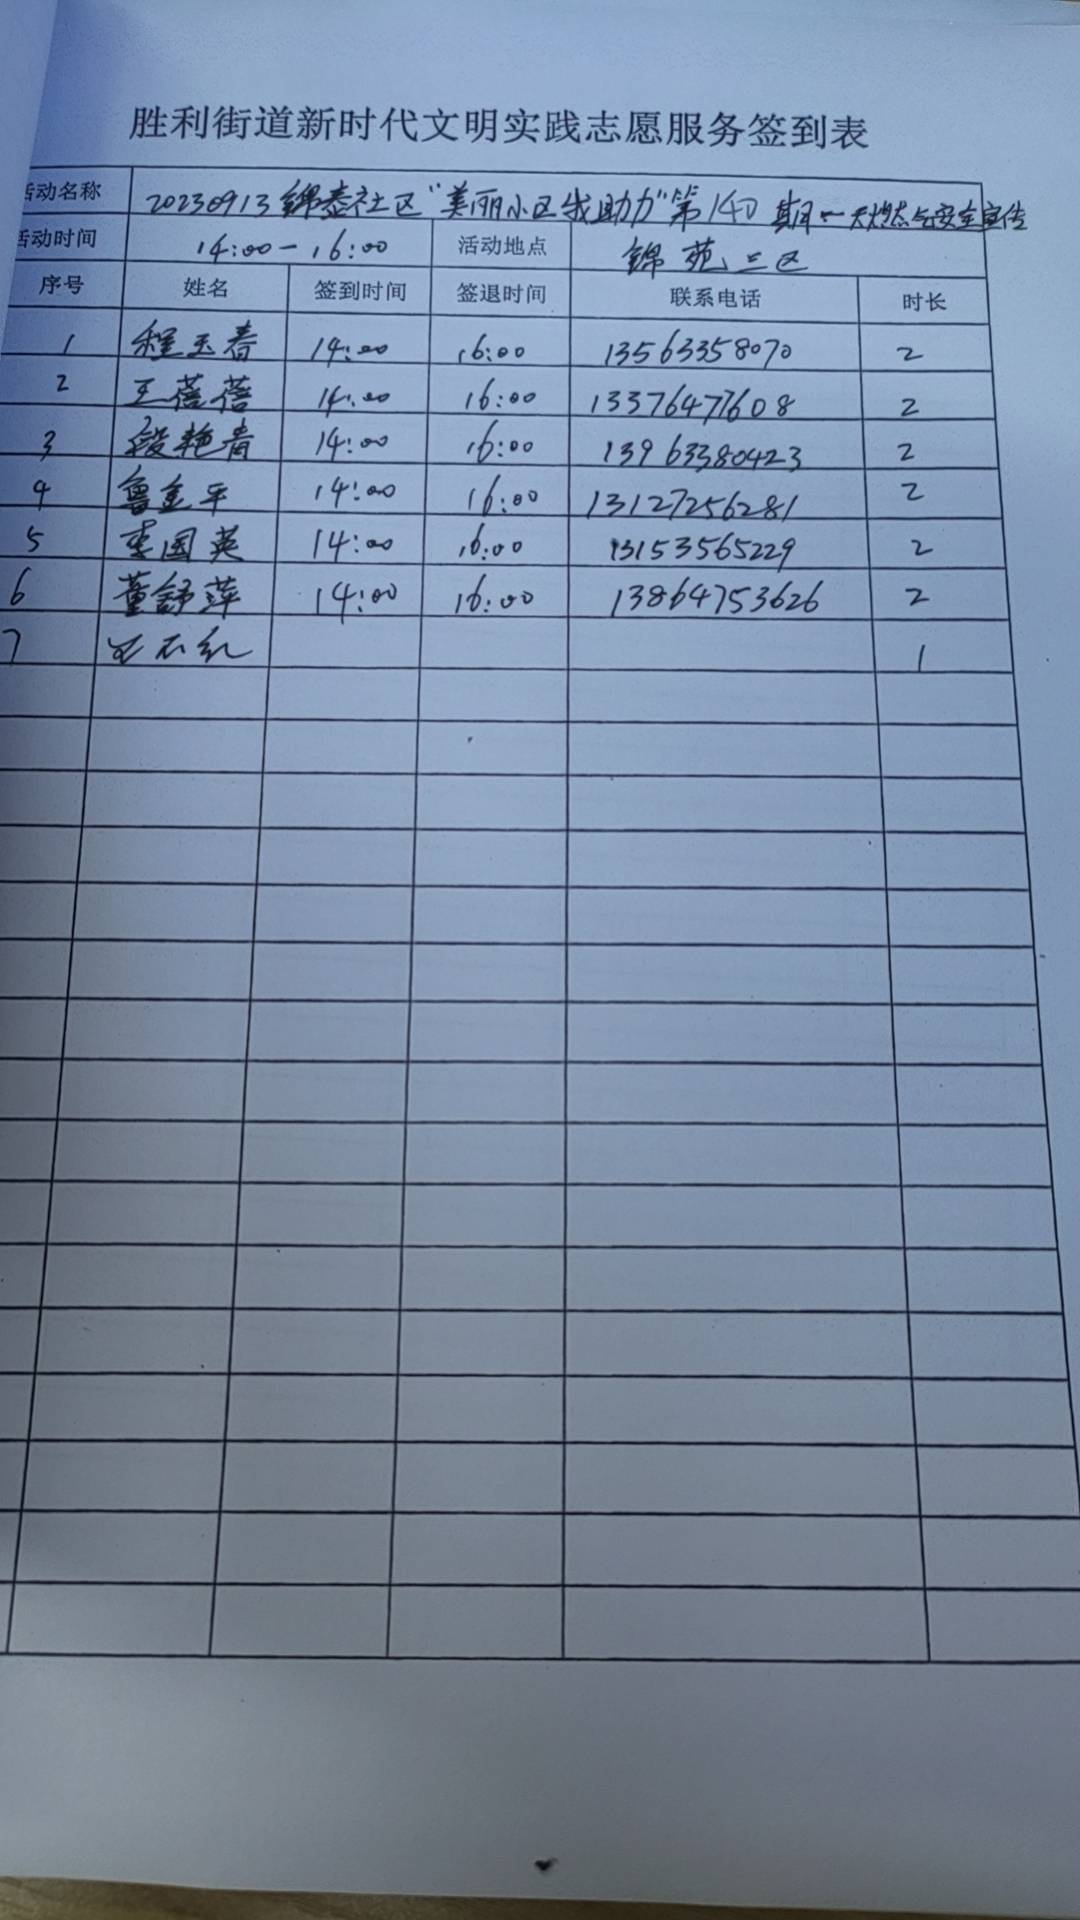 胜利街道新时代文明实践志愿服务签到表
活动名称 20230913锦泰社区"美丽小区我助力"第140期一天燃气安全宣传
活动时间 14:00-16:00 活动地点 锦苑三区
序号 姓名 签到时间 签退时间 联系电话 时长
1 程玉春 14:00 16:00 13563358070 2
2 王蓓蓓 14:00 16:00 13376477608 2
3 段艳青 14:00 16:00 13963380423 2
4 鲁金平 14:00 16:00 13127256281 2
5 李国英 14:00 16:00 13153565229 2
6 董舒萍 14:00 16:00 13864753626 2
7 1